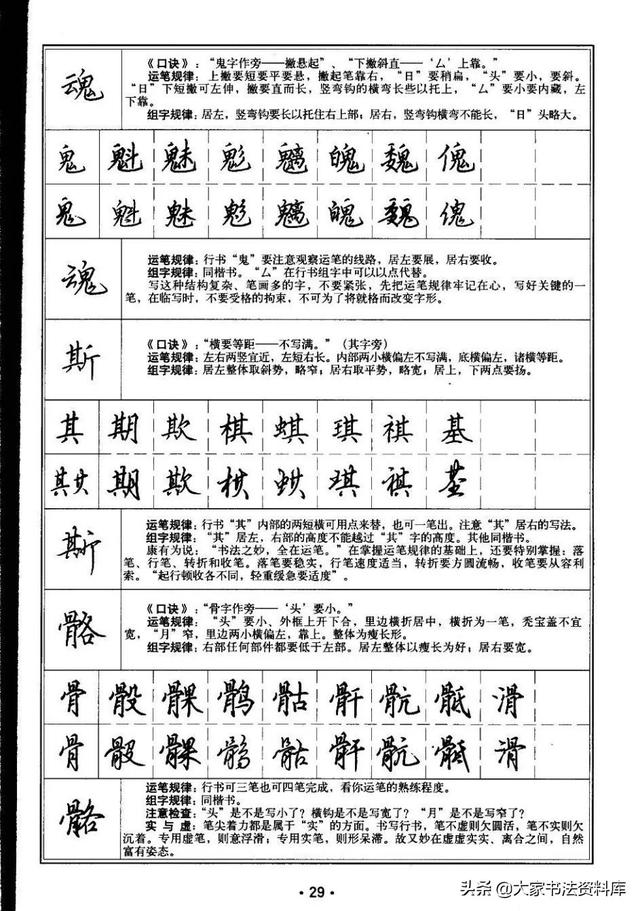 魂
《口诀》：“鬼字作旁——撇悬起”、“下撇斜直——‘厶’上靠。”
运笔规律：上撇要短要平要悬，撇起笔靠右，“日”要稍扁，“头”要小，要斜。
“日”下短撇可左伸，撇要直而长，竖弯钩的横弯长些以托上，“厶”要小要内藏，左
下靠。
组字规律：居左，竖弯钩要长以托住右上部；居右，竖弯钩横弯不能长，“日”头略大。
鬼 魁 魅 魃 魑 魄 魏 傀
鬼 魁 魅 魃 魑 魄 魏 傀
魂
运笔规律：行书“鬼”要注意观察运笔的线路，居左要展，居右要收。
组字规律：同楷书。“厶”在行书组字中可以以点代替。
写这种结构复杂、笔画多的字，不要紧张，先把运笔规律牢记在心，写好关键的一
笔，在临写时，不要受格的拘束，不可为了将就格而改变字形。
斯
《口诀》：“横要等距——不写满。”（其字旁）
运笔规律：左右两竖宜近，左短右长。内部两小横偏左不写满，底横偏左，诸横等距。
组字规律：居左整体取斜势，略窄；居右取平势，略宽；居上，下两点要扬。
其 期 欺 棋 蜞 琪 祺 基
其其 期 欺 棋 蜞 琪 祺 基
斯
运笔规律：行书“其”内部的两短横可用点来替，也可一笔出。注意“其”居右的写法。
组字规律：“其”居左，右部的高度不能越过“其”字的高度。其他同楷书。
康有为说：“书法之妙，全在运笔。”在掌握运笔规律的基础上，还要特别掌握：落
笔、行笔、转折和收笔。落笔要稳实，行笔速度适当，转折要方圆流畅，收笔要从容利
索。“起行顿收各不同，轻重缓急要适度”。
骼
《口诀》：“骨字作旁——‘头’要小。”
运笔规律：“头”要小、外框上开下合，里边横折居中，横折为一笔，秃宝盖不宜
宽，“月”窄，里边两小横偏左，靠上。整体为瘦长形。
组字规律：右部任何部件都要低于左部。居左整体以瘦长为好；居右要宽。
骨 骰 髁 鹘 骷 骭 骯 骶 滑
骨 骰 髁 鹘 骷 骭 骯 骶 滑
骼
运笔规律：行书可三笔也可四笔完成，看你运笔的熟练程度。
组字规律：同楷书。
注意检查：“头”是不是写小了？横钩是不是写宽了？“月”是不是写窄了？
实 与 虚：笔尖着力都是属于“实”的方面。书写行书，笔不虚则欠圆活，笔不实则欠
沉着。专用虚笔，则意浮滑；专用实笔，则形呆滞。故又妙在虚虚实实、离合之间，自然
富有姿态。
· 29 ·
头条 @大家书法资料库